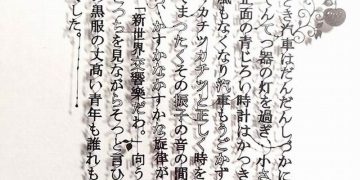 され汽車はだんだんしづかに
てんてつ器の灯を過ぎ小さ
正面の青じろい時計はかつき
風もなくなり汽車もうごかず
カチツカチツと正しく時を
まつたくその振子の音の間
かすかなかすかな旋律が
「新世界交響樂だわ。」向う
こつちを見ながらそつと言ひ
黒服の丈高い青年も誰も
した。